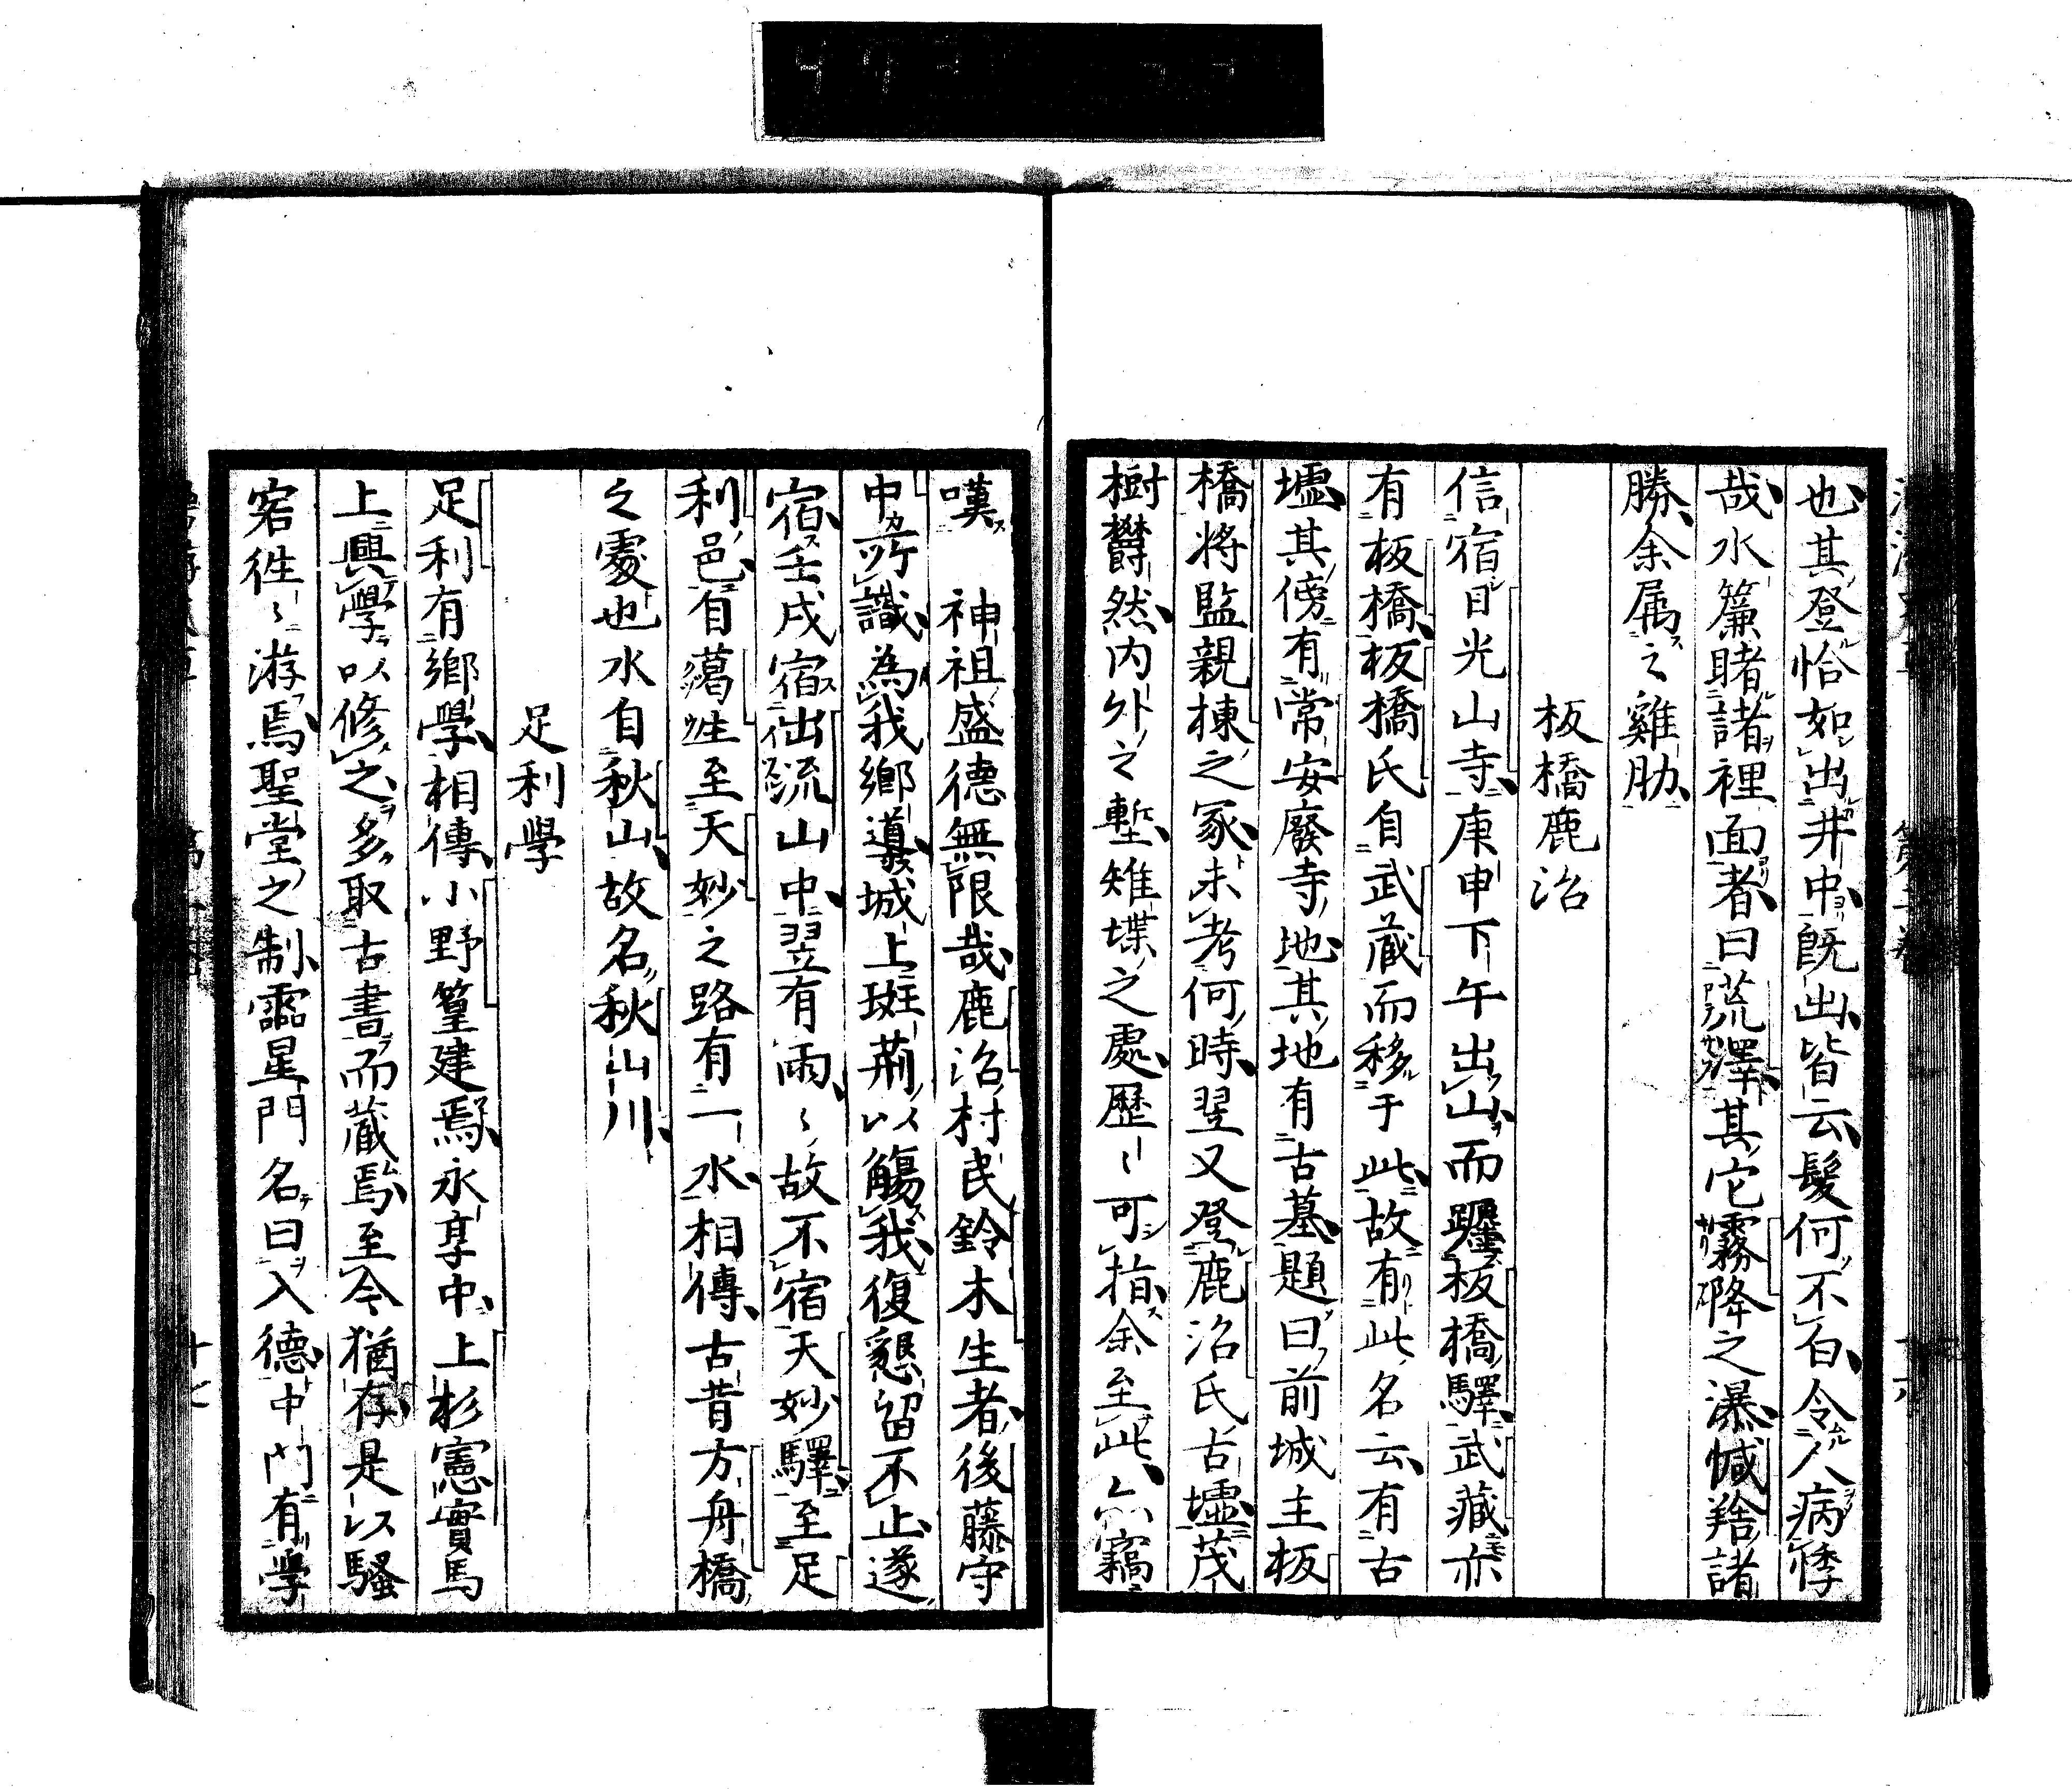 也其登恰如出井中既出皆云髮何不白令人病悸
哉水簾睹諸裡面者曰荒澤其它霧降之瀑憾羚諸
勝余属之雞肋
板橋鹿沼
信宿日光山寺庚申下午出山而躔板橋驛武藏亦
有板橋板橋氏自武藏而移于此故有此名云有古
墟其傍有常安廢寺地其地有古墓題曰前城主板
橋將監親棟之冢未考何時翌又登鹿沼氏古墟茂
樹欝然内外之塹雉堞之處歷〻可指余至此亦竊
嘆　神祖盛德無限哉鹿沼村民鈴木生者後藤守
中所識為我鄉導城上班荊以觴我復懇留不止遂
宿壬戌宿出流山中翌有雨〻故不宿天妙驛至足
利邑自葛生至天妙之路有一水相傳古昔方舟橋
之處也水自秋山故名秋山川
足利學
足利有鄉學相傳小野篁建焉永享中上杉憲實馬
上興學以修之多取古書而藏焉至今猶存是以騷
客徃〻游焉聖堂之制靈星門名曰入德中門有學